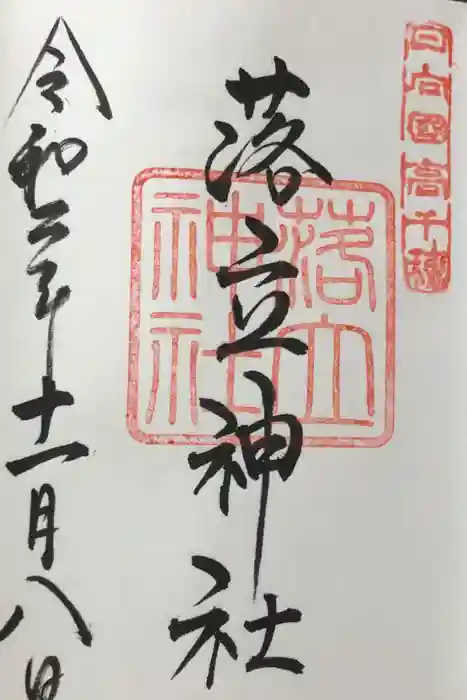 日向國高千穂
落立神社
落立神社
令和二年十一月八日